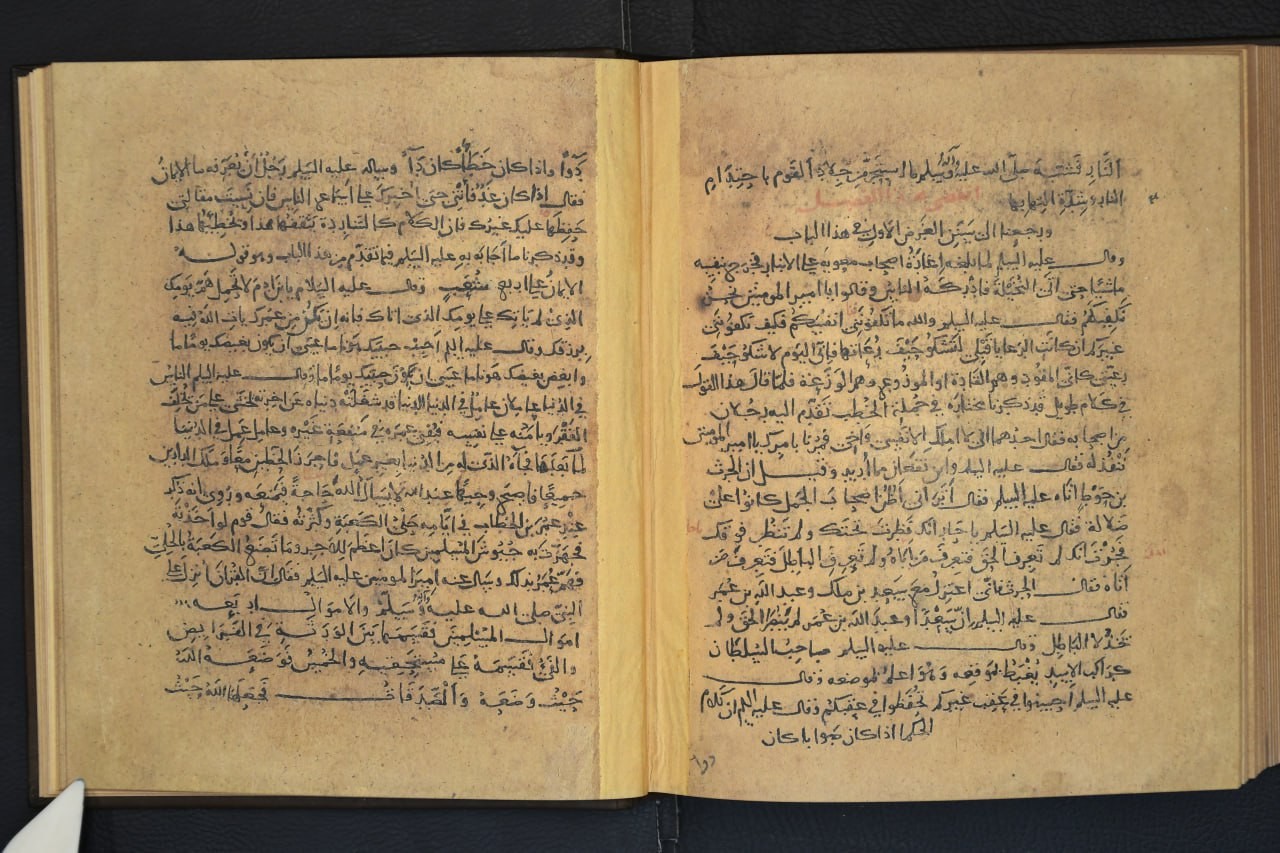 النار فشبه صلى الله عليه وآله وسلم ما استحر من جلاد القوم باحتدام
النار وشدة التهابها
انقضى هذا الفصل
ورجعنا الى سنن الغرض الاول في هذا الباب
وقال عليه السلم لما بلغه اغارة اصحاب معويه على الانبار فخرج بنفسه
ماشيا حتى اتى النخيلة فادركه الناس وقالوا يا امير المومنين نحن
نكفيكهم فقال عليه السلم والله ما تكفونني انفسكم فكيف تكفونني
غيركم ان كانت الرعايا قبلي لتشكو حيف رعاتها فاني اليوم لاشكو حيف
رعيتي كاني المقود وهم القادة او الموزوع وهم الوزعة فلما قال هذا القول
في كلام طويل قد ذكرنا مختاره في جملة الخطب تقدم اليه رجلان
من اصحابه فقال احدهما اني لا املك الا نفسي واخي فمرنا بامرك يا امير المومنين
ننفذ له فقال عليه السلم واين تقعان مما اريد وقيل ان الحرث
بن حوط اتاه عليه السلم فقال اتراني اظن اصحاب الجمل كانوا على
ضلالة فقال عليه السلم يا حار انك نظرت تحتك ولم تنظر فوقك
فحرت انك لم تعرف الحق فتعرف من اتاه ولم تعرف الباطل فتعرف من
اتاه فقال الحرث فاني اعتزل مع سعد بن ملك وعبد الله بن عمر
فقال عليه السلم ان سعدا وعبد الله بن عمر لم ينصرا الحق ولم
يخذلا الباطل وقال عليه السلم صاحب السلطان
كراكب الاسد يغبط بموقعه وهو اعلم بموضعه وقال
عليه السلم احسنوا في عقب غيركم تحفظوا في عقبكم وقال عليه السلم ان كلام
الحكما اذا كان صوابا كان
دوا
دوا واذا كان خطأ كان دآ وساله عليه السلم رجل ان يعرفه ما الايمان
فقال اذا كان غد فاتني حتى اخبرك على اسماع الناس فان نسيت مقالتي
حفظها عليك غيرك فان الكلام كالشاردة يثقفها هذا ويخطيها هذا
وقد ذكرنا ما اجابه به عليه السلم فيما تقدم من هذا الباب وهو قوله
الايمان على اربع شعب وقال عليه السلام يابن ادم لا تحمل هم يومك
الذي لم ياتك على يومك الذي اتاك فانه ان يكن من عمرك يات الله فيه
برزقك وقال عليه السلم احبب حبيبك هونا ما عسى ان يكون بغيضك يوما ما
وابغض بغيضك هونا ما عسى ان يكون حبيبك يوما ما وقال عليه السلم الناس
في الدنيا عاملان عامل في الدنيا للدنيا قد شغلته دنياه عن اخرته يخشى على من يخلف
الفقر ويامنه على نفسه فيفني عمره في منفعة غيره وعامل عمل في الدنيا
لما بعدها فجاه الذي له من الدنيا بغير عمل فاحرز الحظين معا وملك الدارين
جميعا فاصبح وجيها عند الله لا يسال الله حاجة فيمنعه وروي انه ذكر
عند عمر بن الخطاب في ايامه حلي الكعبة وكثرته فقال قوم لو اخذته
فجهزت به جيوش المسلمين كان اعظم للاجر وما تصنع الكعبة بالحلي
فهم عمر بذلك وسال عنه امير المومنين عليه السلم فقال ان القران انزل على
النبي صلى الله عليه وآله وسلم والاموال اربعه
اموال المسلمين فقسمها بين الورثة في الفرايض
والفي فقسمه على مستحقيه والخمس فوضعه الله
حيث وضعه والصدقات فجعلها الله حيث